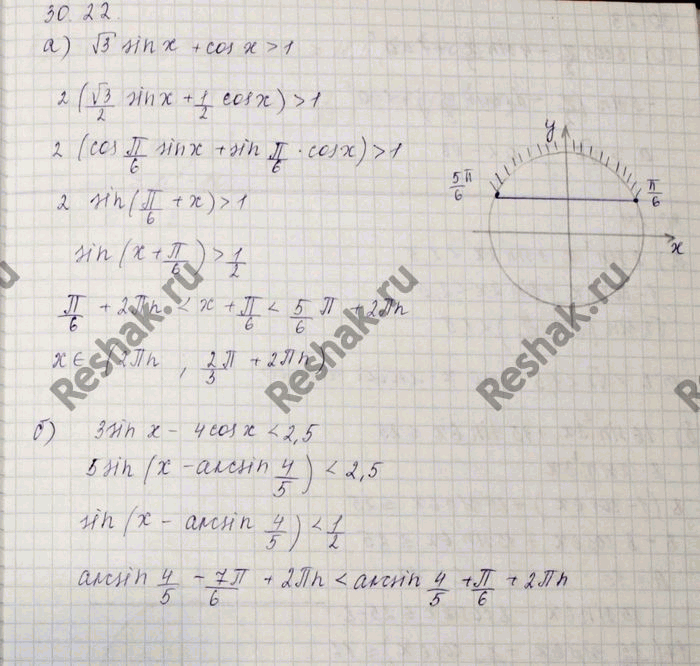 30.22.
а) √3 sin x + cos x > 1
2 (√3/2 sin x + 1/2 cos x) > 1
2 (cos π/6 sin x + sin π/6 · cos x) > 1
2 sin (π/6 + x) > 1
sin (x + π/6) > 1/2
π/6 + 2πn < x + π/6 < 5/6 π + 2πn
x ∈ (2πn , 2/3 π + 2πn)
y
5/6 π
π/6
x
б) 3 sin x - 4 cos x < 2,5
5 sin (x - arcsin 4/5) < 2,5
sin (x - arcsin 4/5) < 1/2
arcsin 4/5 - 7π/6 + 2πn < arcsin 4/5 + π/6 + 2πn
Reshak.ru
Reshak.ru
Reshak.ru